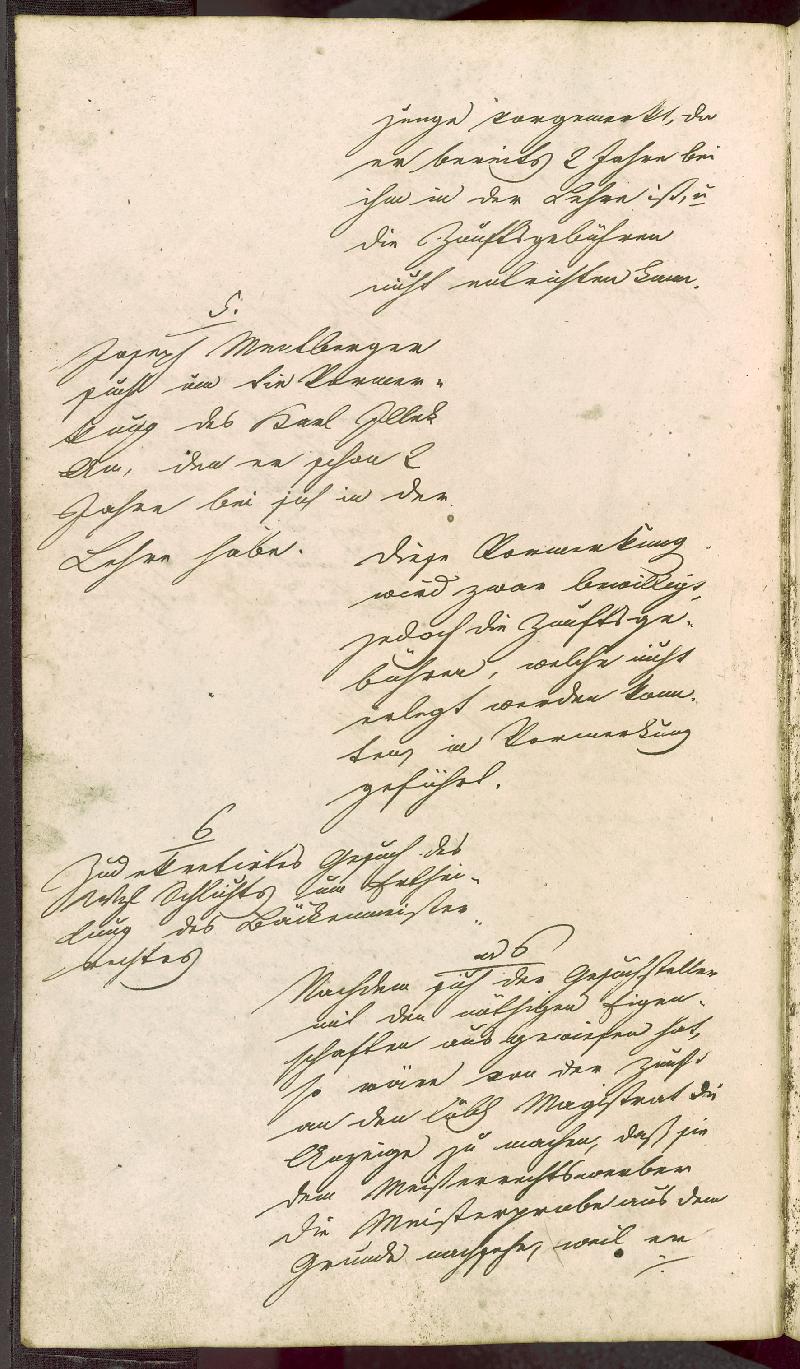 junge vorgemerkt, da
er bereits 2 Jahre bei
ihm in der Lehre ist, u
die Zunftsgebühren
nicht entrichten kann.
5.
Joseph Mentberger
sucht um die Vormer-
kung des Karl Illek
an, den er schon 2
Jahre bei sich in der
Lehre habe.
Diese Vormerkung
wird zwar bewilligt,
jedoch die Zunftsge-
bühren, welche nicht
erlegt werden konn-
ten, in Vormerkung
geführt.
6
Gesuch des
Schlichts um Erthei-
lung des Bäckenmeister
rechtes
ad 6
Nachdem sich der Gesuchsteller
mit den nöthigen Eigen-
schaften ausgewiesen hat,
so wäre von der Zunft
an den löbl Magistrat die
Anzeige zu machen, daß sie
dem Meisterrechtswerber
die Meisterprobe aus dem
Grunde nachsehe, weil er